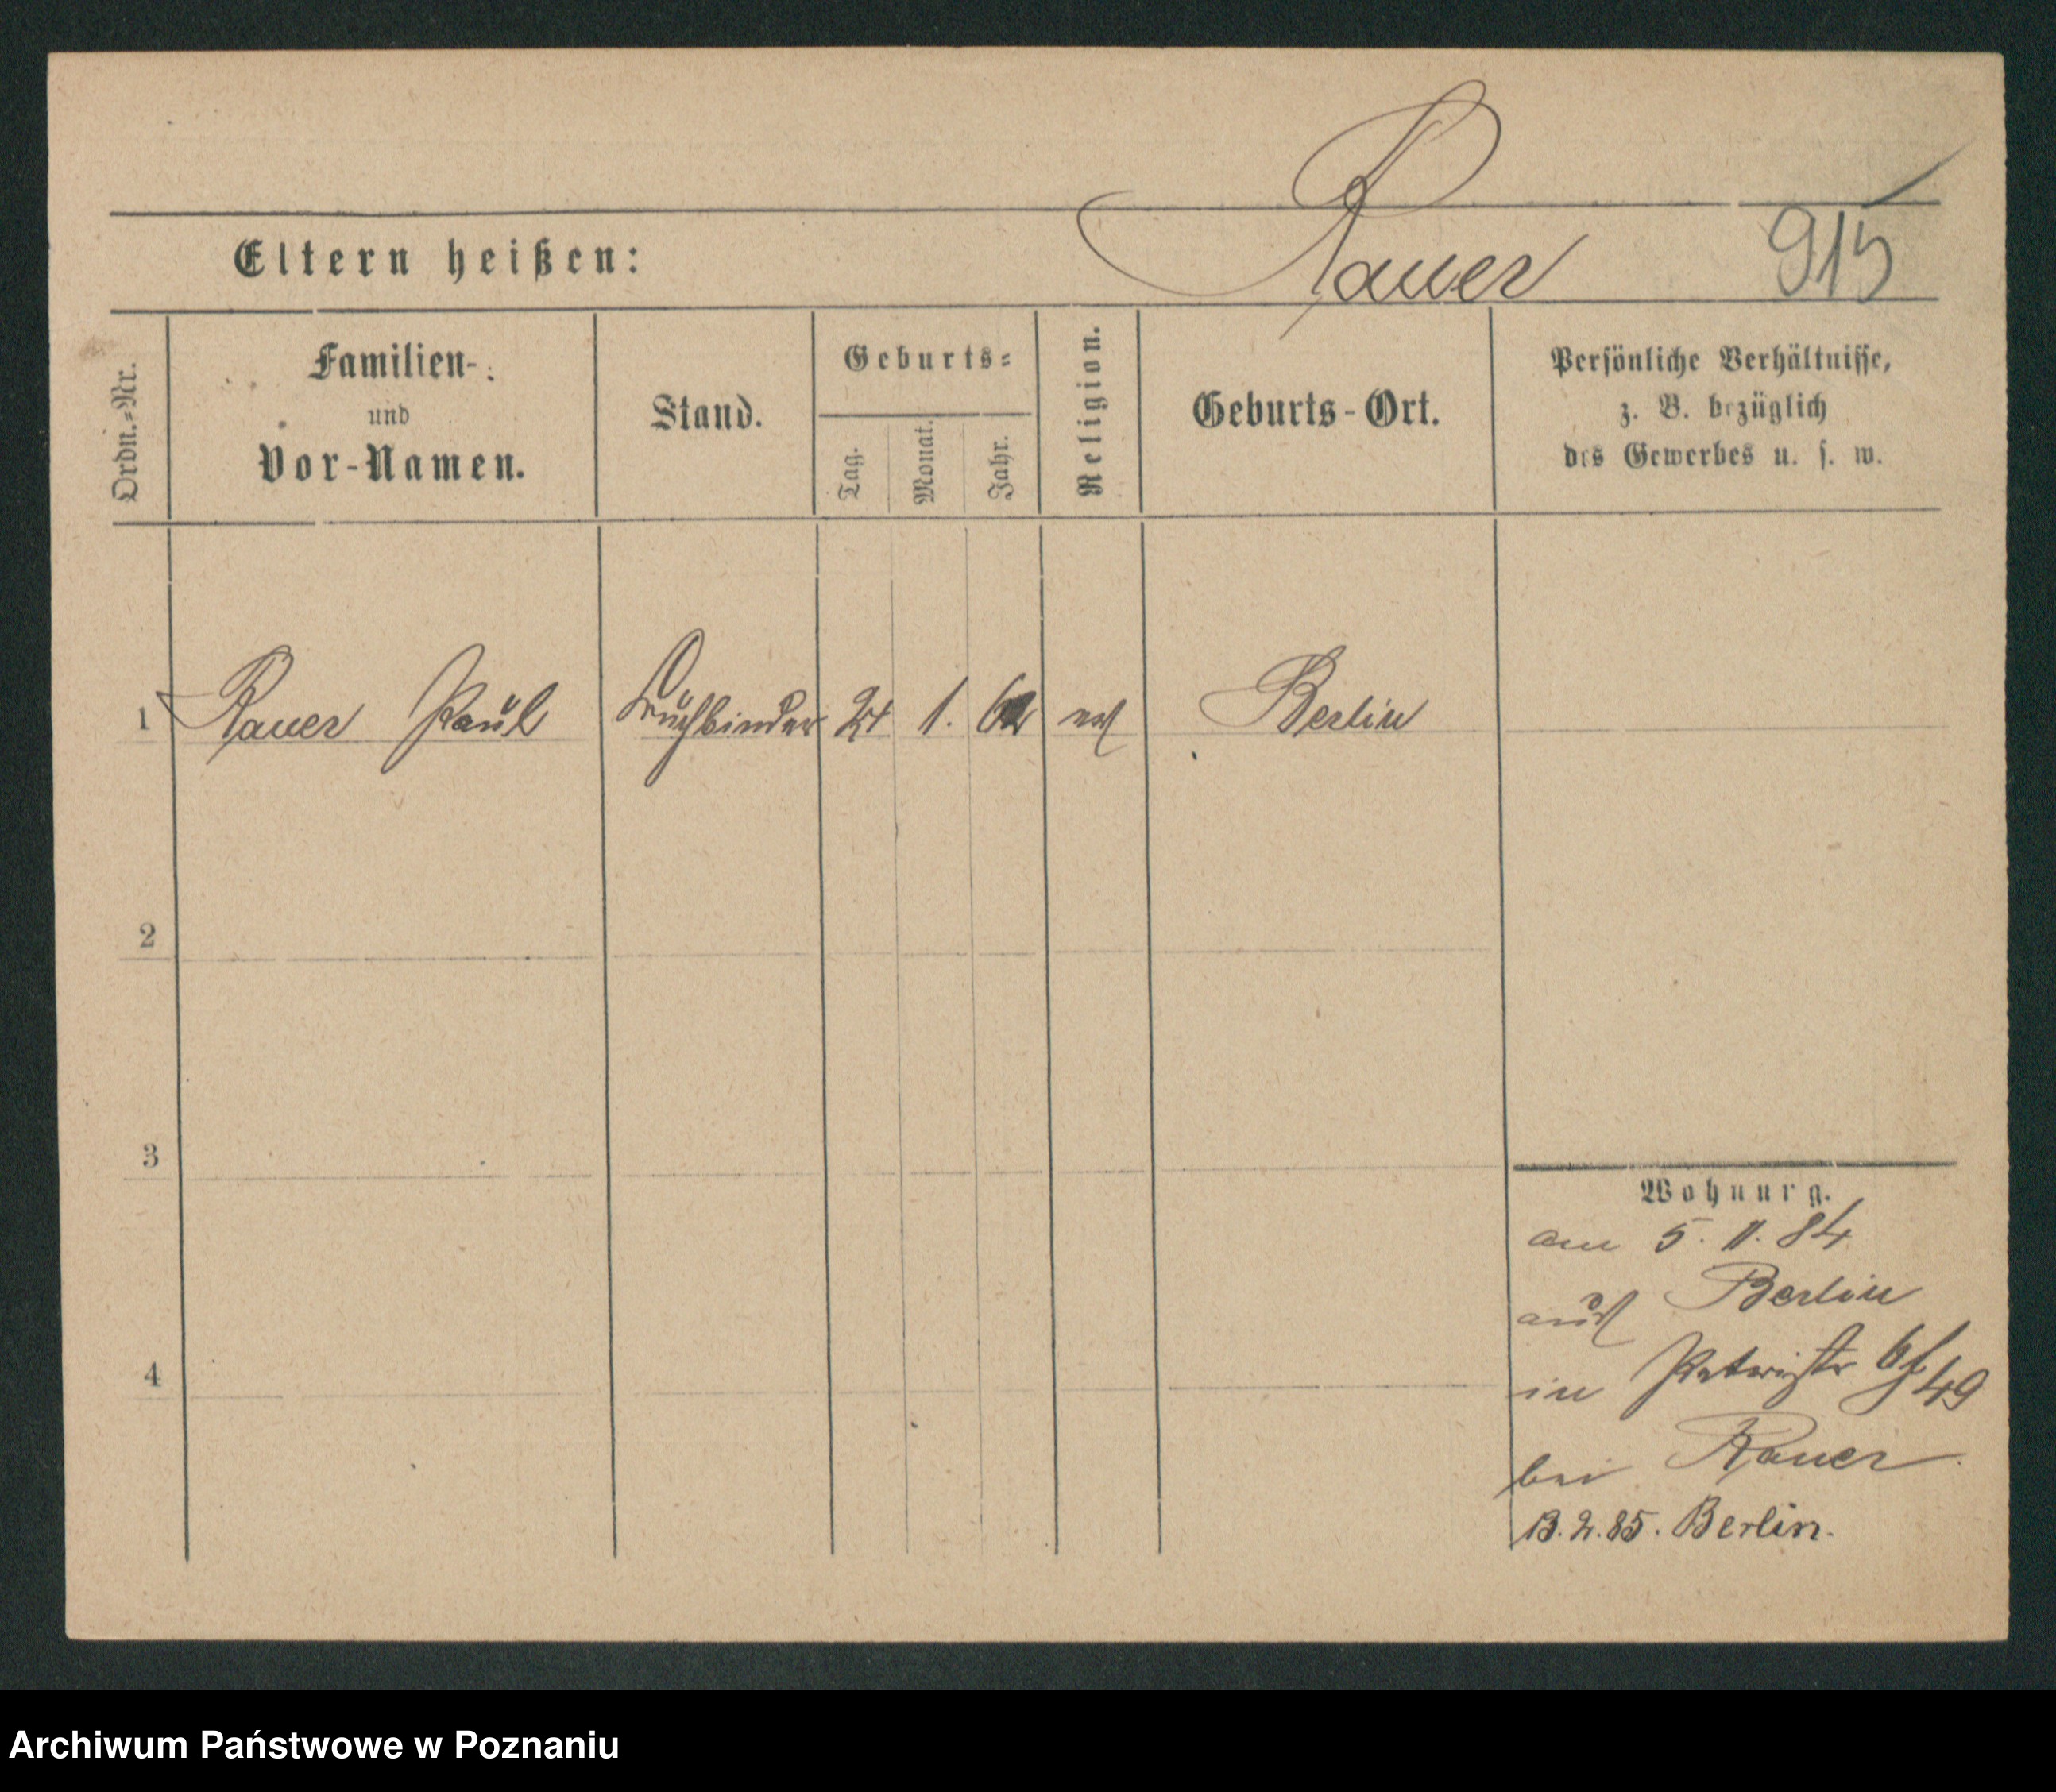 Rauer
915
Eltern heißen:
Ordn.-Nr.
Familien-
und
Vor-Namen.
Stand.
Geburts-
Tag.
Monat.
Jahr.
Religion.
Geburts-Ort.
Persönliche Verhältnisse,
z. B. bezüglich
des Gewerbes u. s. w.
1 Rauer Paul Buchbinder 24 1. ev Berlin
2
3
4
Wohnung.
am 5. 11. 84
aus Berlin
in Petristr 49
bei Rauer
13. 2. 85. Berlin.
Archiwum Państwowe w Poznaniu